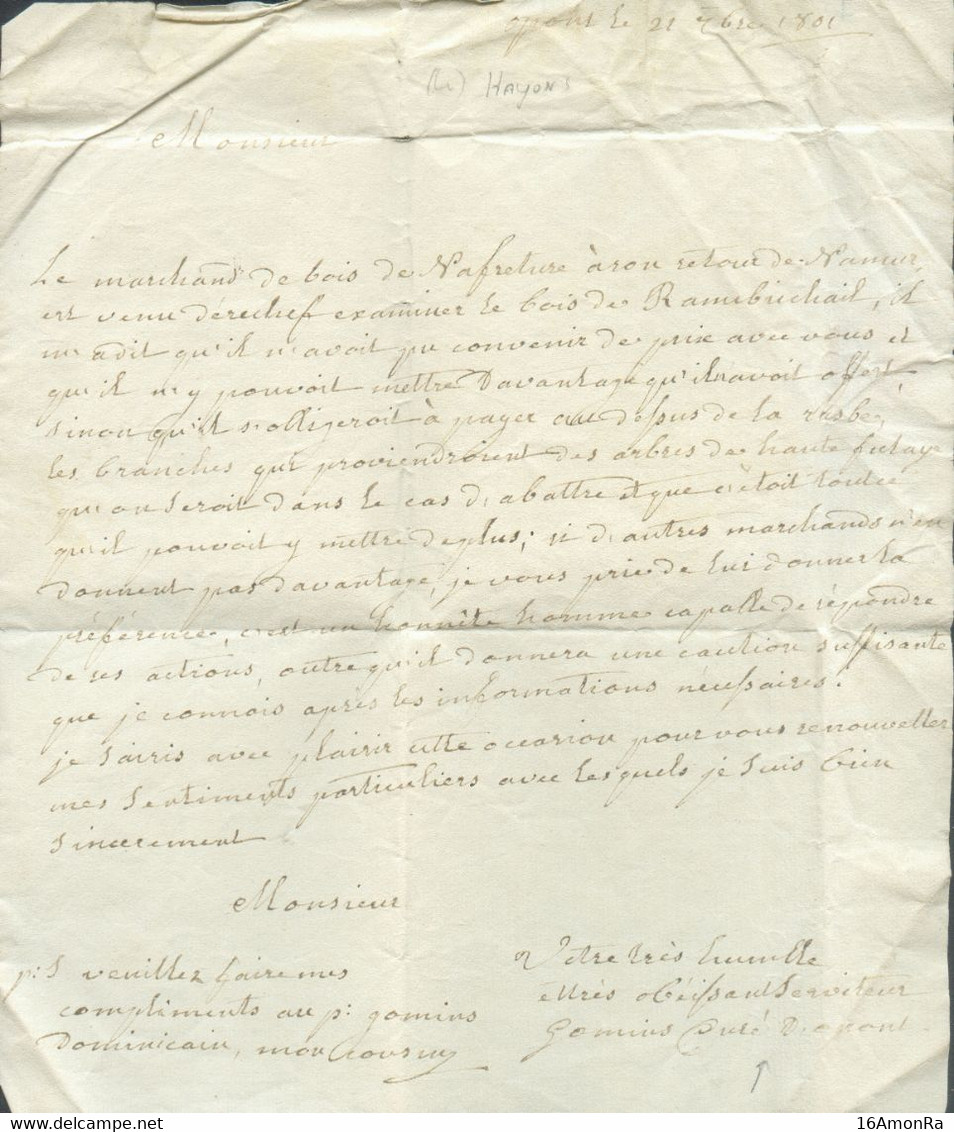 opont le 21 7bre 1801
Hayons
Monsieur
Le marchand de bois de Nafreture à son retour de Namur,
est venu dérechef examiner le bois de Ramebuchail, il
m'a dit qu'il n'avoit pu convenir de prix avec vous et
qu'il n'y pouvoit mettre davantage qu'il n'avoit offert,
sinon qu'il s'obligeroit à payer au dessus de la rasbe,
les branches qui proviendroient des arbres de haute futaye
qu'on seroit dans le cas d'abattre et que c'étoit tout ce
qu'il pouvoit y mettre de plus; si d'autres marchands n'en
donnent pas davantage, je vous prie de lui donner la
préférence, c'est un honnête homme capable de répondre
de ses actions, outre qu'il donnera une caution suffisante
que je connois après les informations nécessaires.
je saisis avec plaisir cette occasion pour vous renouveller
mes sentiments particuliers avec lesquels je suis bien
sincerement
Monsieur
p:S veuillez faire mes
compliments au p: gomins
Dominicain, mon cousin
Votre très humble
et très obéissant serviteur
Gomins Curé D'opont
16AmonRa